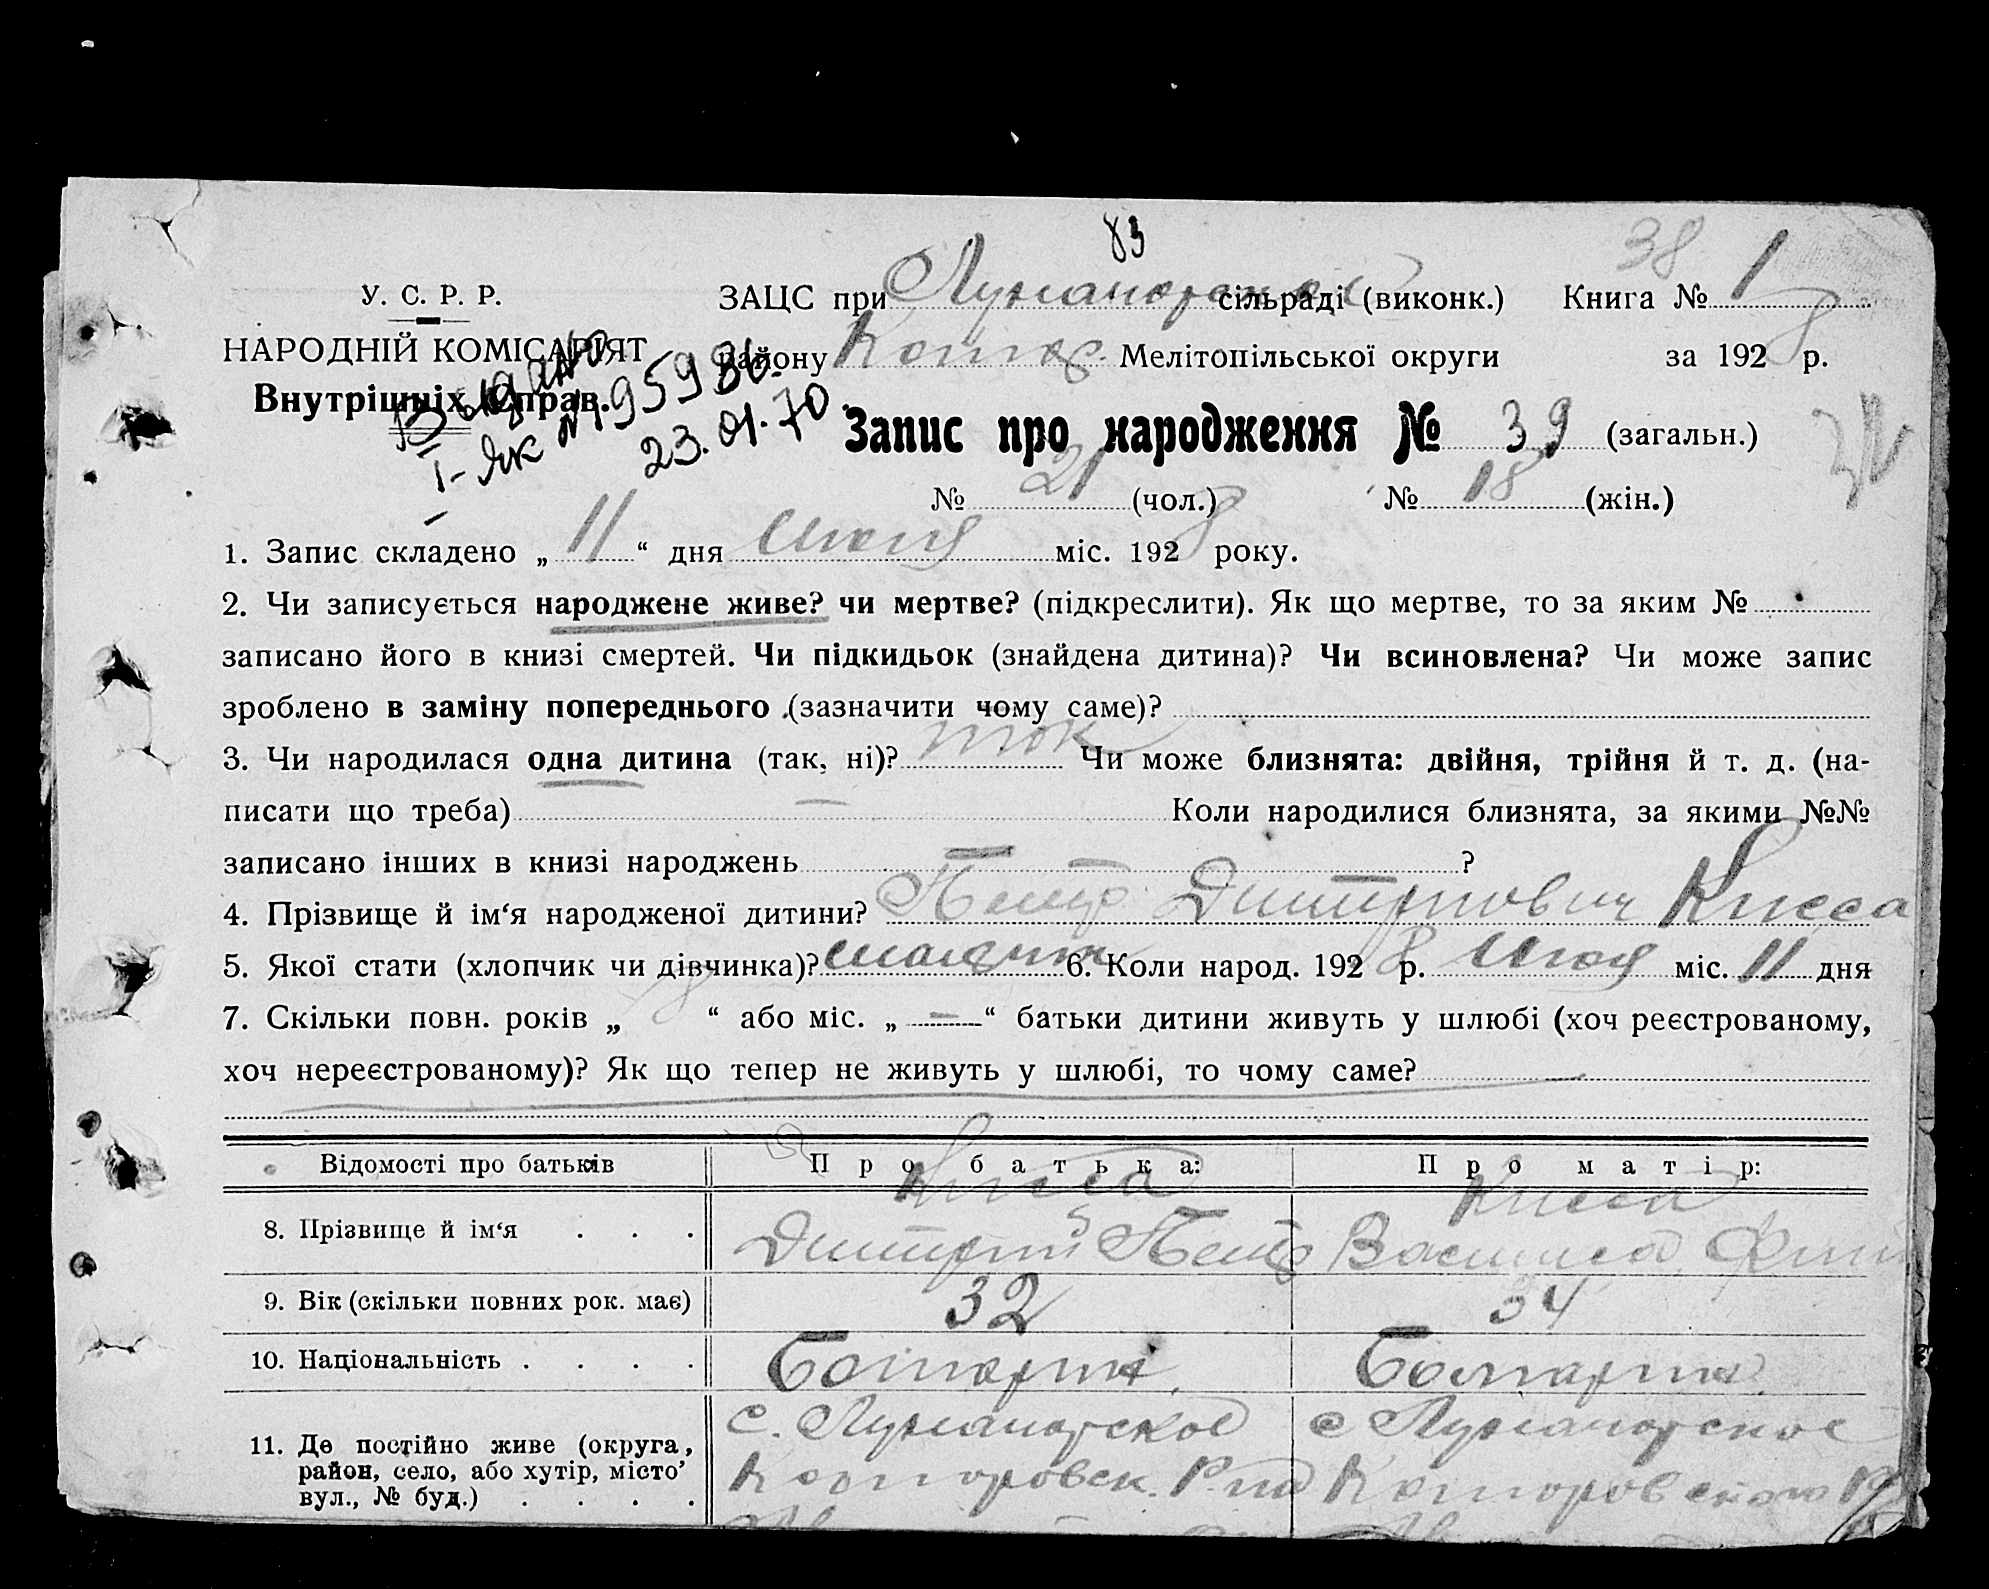 83
38
У. С. Р. Р.
ЗАЦС при сільраді (виконк.) Книга № 1
НАРОДНІЙ КОМІСАРІЯТ
району Мелітопільської округи за 1928 р.
Внутрішніх Справ.
Выдано
I-ЯК № 195986.
23.01.70
Запис про народження № 39 (загальн.)
№ 21 (чол.) № 18 (жін.)
1. Запис складено „ 11 “ дня міс. 1928 року.
2. Чи записується народжене живе? чи мертве? (підкреслити). Як що мертве, то за яким №
записано його в книзі смертей. Чи підкидьок (знайдена дитина)? Чи всиновлена? Чи може запис
зроблено в заміну попереднього (зазначити чому саме)?
3. Чи народилася одна дитина (так, ні)? так Чи може близнята: двійня, трійня й т. д. (на-
писати що треба) — Коли народилися близнята, за якими №№
записано інших в книзі народжень — ?
4. Прізвище й ім‘я народженої дитини? Петр Дмитриович Кисса
5. Якої стати (хлопчик чи дівчинка)? 6. Коли народ. 1928 р. міс. 11 дня
7. Скільки повн. років „ 8 “ або міс. „ — “ батьки дитини живуть у шлюбі (хоч реєстрованому,
хоч нереєстрованому)? Як що тепер не живуть у шлюбі, то чому саме?
Відомості про батьків Про батька: Про матір:
Кисса Кисса
8. Прізвище й ім‘я . . . Дмитрий Петр Василиса
9. Вік (скільки повних рок. має) 32 34
10. Національність . . . . Болгарин. Болгарка
11. Де постійно живе (округа,
район, село, або хутір, місто’
вул., № буд.) . . . .